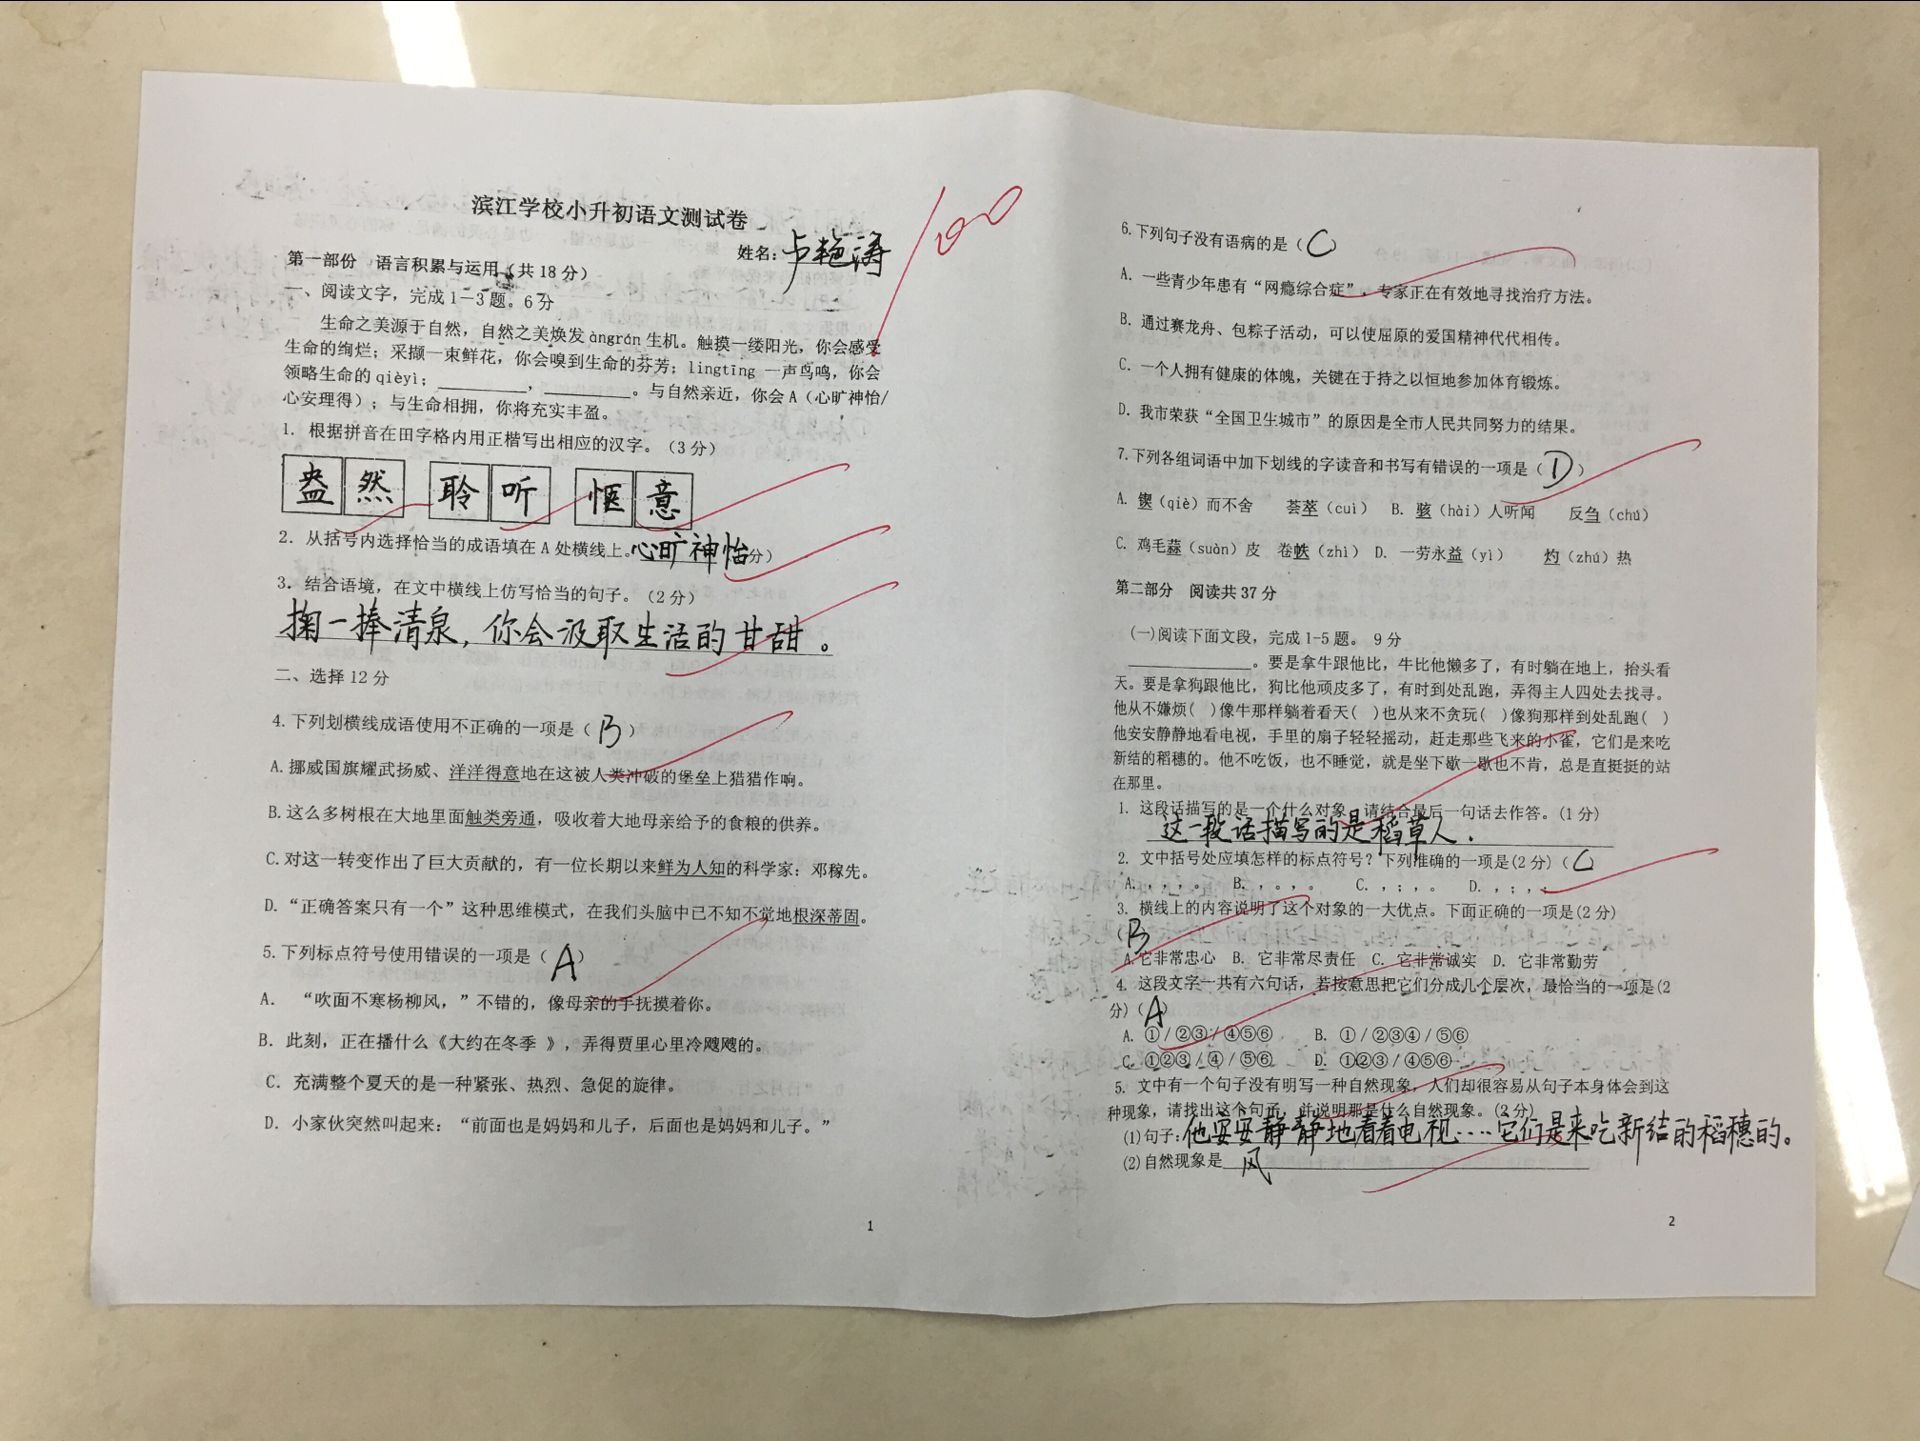 滨江学校小升初语文测试卷
姓名：卢艳涛
100
第一部份 语言积累与运用（共18分）
一、阅读文字，完成1—3题。6分
生命之美源于自然，自然之美焕发àngrán生机。触摸一缕阳光，你会感受
生命的绚烂；采撷一束鲜花，你会嗅到生命的芬芳；lingtīng 一声鸟鸣，你会
领略生命的qièyì；__________，__________。与自然亲近，你会A（心旷神怡/
心安理得）；与生命相拥，你将充实丰盈。
1. 根据拼音在田字格内用正楷写出相应的汉字。（3分）
盎然 聆听 惬意
2. 从括号内选择恰当的成语填在A处横线上。心旷神怡分）
3. 结合语境，在文中横线上仿写恰当的句子。（2分）
掬一捧清泉，你会汲取生活的甘甜。
二、选择12分
4.下列划横线成语使用不正确的一项是（B）
A.挪威国旗耀武扬威、洋洋得意地在这被人类冲破的堡垒上猎猎作响。
B.这么多树根在大地里面触类旁通，吸收着大地母亲给予的食粮的供养。
C.对这一转变作出了巨大贡献的，有一位长期以来鲜为人知的科学家：邓稼先。
D.“正确答案只有一个”这种思维模式，在我们头脑中已不知不觉地根深蒂固。
5.下列标点符号使用错误的一项是（A）
A. “吹面不寒杨柳风，”不错的，像母亲的手抚摸着你。
B. 此刻，正在播什么《大约在冬季 》，弄得贾里心里冷飕飕的。
C. 充满整个夏天的是一种紧张、热烈、急促的旋律。
D. 小家伙突然叫起来：“前面也是妈妈和儿子，后面也是妈妈和儿子。”
1
6.下列句子没有语病的是（C
A. 一些青少年患有“网瘾综合症”，专家正在有效地寻找治疗方法。
B. 通过赛龙舟、包粽子活动，可以使屈原的爱国精神代代相传。
C. 一个人拥有健康的体魄，关键在于持之以恒地参加体育锻炼。
D. 我市荣获“全国卫生城市”的原因是全市人民共同努力的结果。
7.下列各组词语中加下划线的字读音和书写有错误的一项是（D）
A. 锲（qiè）而不舍 荟萃（cuì） B. 骇（hài）人听闻 反刍（chú）
C. 鸡毛蒜（suàn）皮 卷帙（zhì） D. 一劳永益（yì） 灼（zhú）热
第二部分 阅读共37分
(一)阅读下面文段，完成1-5题。 9分
______________。要是拿牛跟他比，牛比他懒多了，有时躺在地上，抬头看
天。要是拿狗跟他比，狗比他顽皮多了，有时到处乱跑，弄得主人四处去找寻。
他从不嫌烦( )像牛那样躺着看天( )也从来不贪玩( )像狗那样到处乱跑( )
他安安静静地看电视，手里的扇子轻轻摇动，赶走那些飞来的小雀，它们是来吃
新结的稻穗的。他不吃饭，也不睡觉，就是坐下歇一歇也不肯，总是直挺挺的站
在那里。
1. 这段话描写的是一个什么对象，请结合最后一句话去作答。(1分)
这一段话描写的是稻草人.
2. 文中括号处应填怎样的标点符号？下列准确的一项是(2分)（C
A.，，，。 B.，。，。 C.，；，。 D.，；，；
3. 横线上的内容说明了这个对象的一大优点。下面正确的一项是(2分)
（B
A.它非常忠心 B. 它非常尽责任 C. 它非常诚实 D. 它非常勤劳
4. 这段文字一共有六句话，若按意思把它们分成几个层次，最恰当的一项是(2
分)（A）
A. ①/②③/④⑤⑥ B. ①/②③④/⑤⑥
C. ①②③/④/⑤⑥ D. ①②③/④⑤⑥
5. 文中有一个句子没有明写一种自然现象，人们却很容易从句子本身体会到这
种现象，请找出这个句子，并说明那是什么自然现象。(2分)
(1)句子：他安安静静地看着电视……它们是来吃新结的稻穗的。
(2)自然现象是 风
2